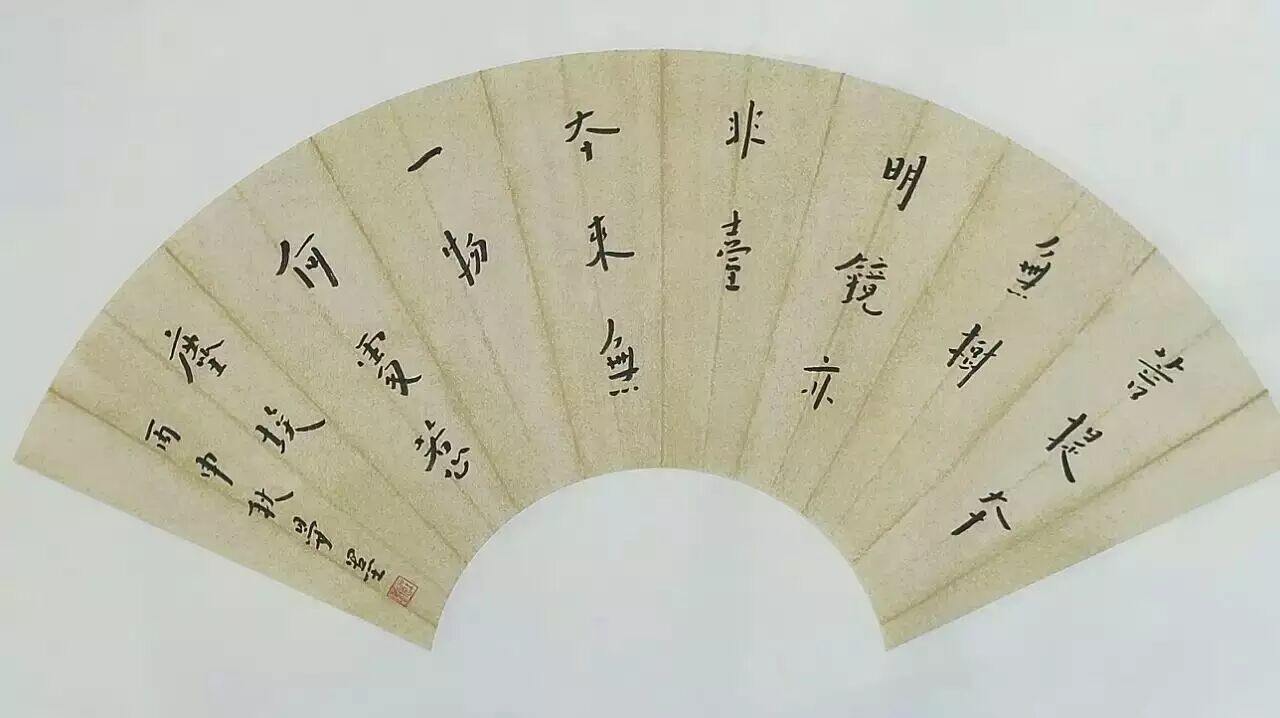 菩提本
無樹
明鏡亦
非臺
本來無
一物
何處惹
塵埃
丙申秋